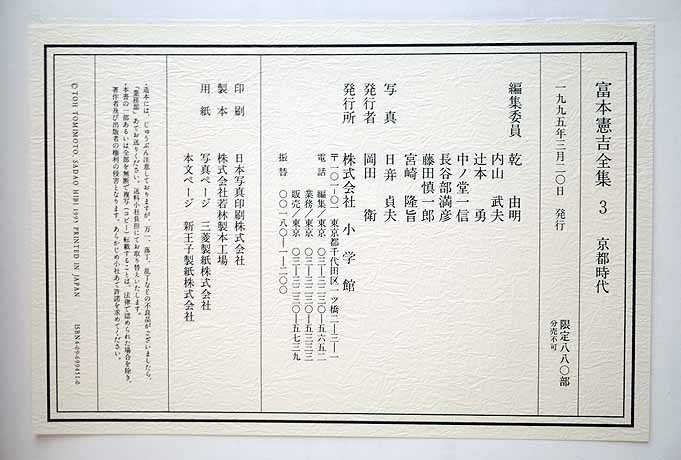 富本憲吉全集 3 京都時代
一九九五年三月二〇日 発行
限定八八〇部
分売不可
編集委員 乾 由明
内山 武夫
辻本 勇
中ノ堂一信
長谷部満彦
藤田慎一郎
宮崎 隆旨
写真 日弁 貞夫
発行者 岡田 衛
発行所 株式会社 小学館
〒一〇一-〇一 東京都千代田区一ツ橋二-三-一
電話 編集/東京 〇三-三二三〇-五六五二
業務/東京 〇三-三二三〇-五三三三
販売/東京 〇三-三二三〇-五七三九
振替 〇〇一八〇-一-二〇〇
印刷 日本写真印刷株式会社
製本 株式会社若林製本工場
用紙 写真ページ 三菱製紙株式会社
本文ページ 新王子製紙株式会社
・造本には、じゅうぶん注意しておりますが、万一、落丁、乱丁などの不良品がございましたら、
「業務部」あてお送りください。送料小社負担にてお取り替えいたします。
・本書の一部あるいは全部を無断で複写(コピー)転載することは、法律で認められた場合を除き、
著作者及び出版者の権利の侵害となります。あらかじめ小社あて許諾を求めてください。
© TOH TOMIMOTO, SADAO HIBI 1995 PRINTED IN JAPAN
ISBN4-09-699451-0